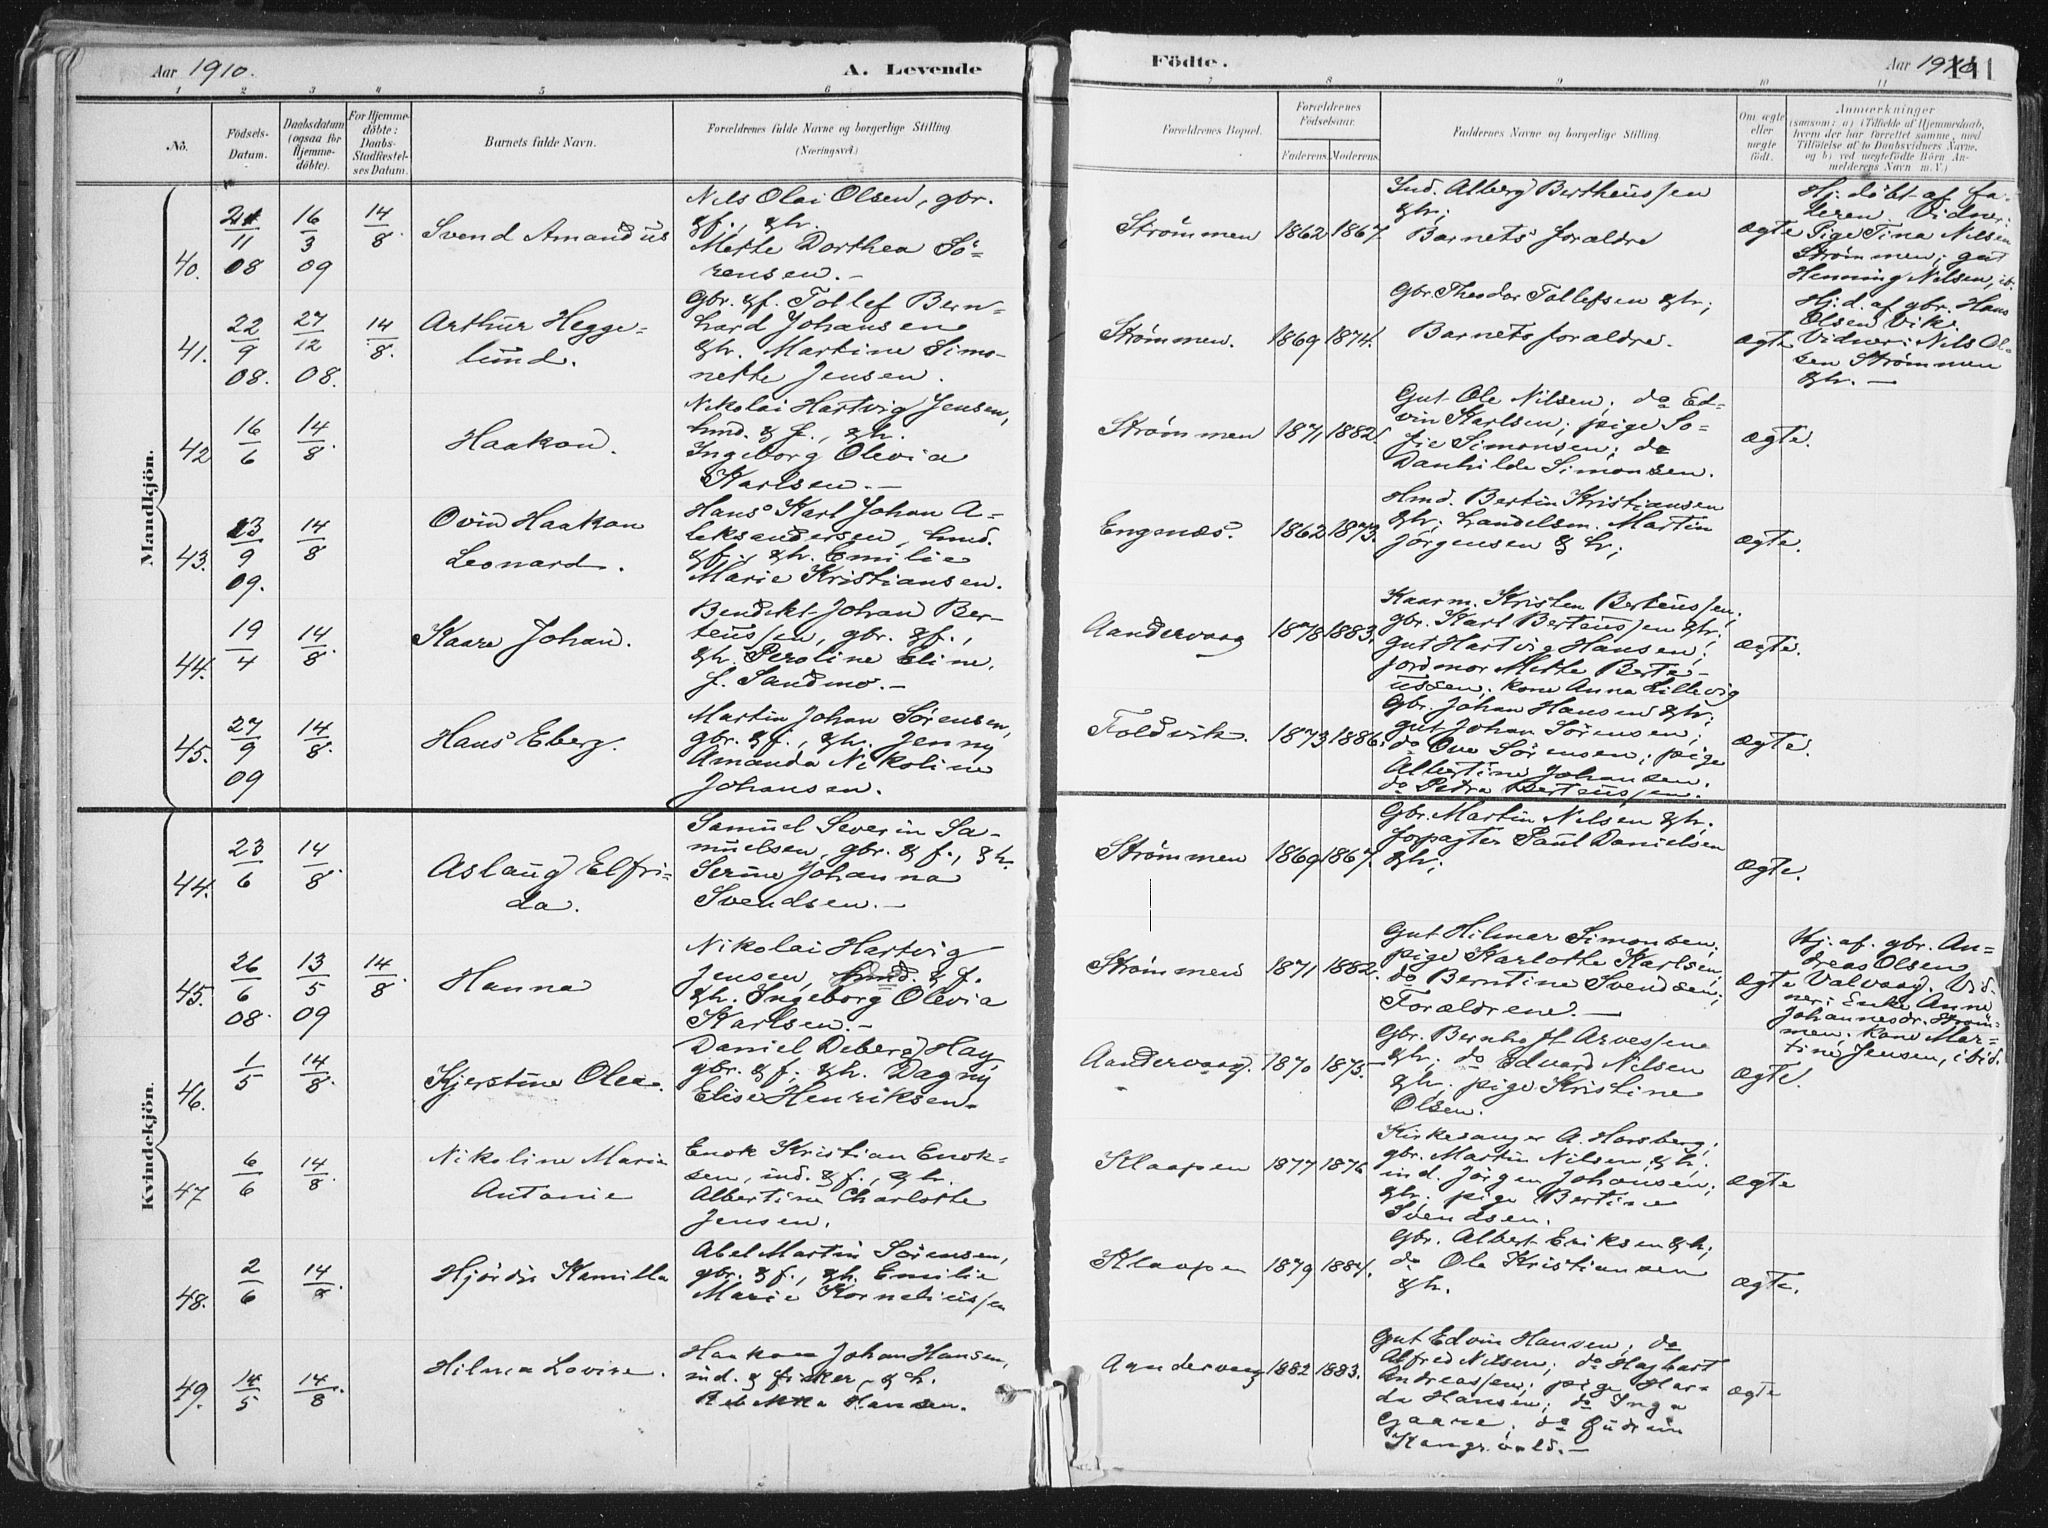 Aar 1910.
A. Levende
Födte.
Aar 1910
141
1 2 3 4 5 6 7 8 9 10 11
No.
Födsels-
Datum.
Daabsdatum
(ogsaa for
Hjemme-
döbte).
For Hjemme-
döbte:
Daabs-
Stadfæstel-
ses Datum.
Barnets fulde Navn.
Forældrenes fulde Navne og borgerlige Stilling
(Næringsvei.)
Forældrenes Bopæl.
Forældrenes
Födselsaar.
Faderens.
Moderens.
Faddernes Navne og borgerlige Stilling.
Om ægte
eller
uægte
födt.
Anmærkninger
(saasom: a) i Tilfælde af Hjemmedaab,
hvem der har forrettet samme, med
Tilföielse af to Daabsvidners Navne,
og b) ved uægtefödte Börn An-
melderens Navn m. V.)
Mandkjön.
40.
21/11 08
16/3 09
14/8.
Svend Amandus
Nils Olai Olsen, gbr.
&f., &h.
Mette Dorthea Sö-
rensen.-
Strømmen
1862
1867
Ind. Alberg Bertheussen
&h;
Barnets forældre
ægte
Hj. döbt af fa-
deren. Vidner:
Pige Tina Nilsen
Strømmen; gut
Henning Nilsen, ib.
41.
22/9 08.
27/12 08.
14/8.
Arthur Hegge-
lund.
Gbr. &f. Tollef Bern-
hard Johansen
&h. Martine Simo-
nette Jensen.
Strømmen.
1869
1874.
Gbr Theodor Tollefsen &h;
Barnets forældre.
ægte
Hj. d. af gbr. Hans
Olsen Vik.
Vidner: Nils Ol-
sen Strømmen
&h.-
42
16/6
14/8.
Haakon.
Nikolai Hartvig Jensen,
hmd. & f., &h.
Ingeborg Olevia
Karlsen.-
Strømmen
1871
1882.
Gut Ole Nilsen; do Ed-
vin Karlsen; pige So-
fie Simonsen; do
Danhilde Simonsen.
ægte.
43.
23/9 09.
14/8
Ovin Haakon
Leonard.
Hans Karl Johan A-
leksandersen, hmd.
&f., &h. Emilie
Marie Kristiansen.
Engenæs.
1862
1873.
Hmd. Bertin Kristiansen
&h; handelsm. Martin
Jørgensen & h;
ægte.
44.
19/4
14/8.
Kaare Johan.
Benedikt Johan Ber-
teussen, gbr. &f.,
&h. Peroline Eline,
f. Sandmo.-
Aandervaag
1878
1883.
Kaarm. Kristen Berteussen;
gbr. Karl Berteussen &h;
gut Hartvig Hansen;
jordmor Mette Berte-
ussen; kone Anna Lillevig
ægte.
45.
27/9 09
14/8.
Hans Eberg.
Martin Johan Sørensen,
gbr. &f., &h. Jenny
Amanda Nikoline
Johansen.
Foldvik.
1873
1886.
Gbr. Johan Hansen &h;
gut Johan Sørensen;
do Ove Sørensen; pige
Albertine Johansen.
do Petra Berteussen.
ægte.
Kvindekjön.
44.
23/6
14/8.
Aslaug Elfri-
da.
Samuel Severin Sa-
muelsen, gbr. & f., &h.
Serine Johanna
Svendsen.-
Strømmen
1869
1867.
Gbr. Martin Nilsen &h.
forpagter Paul Danielsen
&h;
ægte.
45.
26/6 08.
13/5 09
14/8.
Hanna
Nikolai Hartvig
Jensen, hmd. & f.
&h. Ingeborg Olevia
Karlsen.-
Strømmen
1871
1882.
Gut Hilmar Simonsen;
pige Karlotte Karlsen;
do Berntine Svendsen;
Forældrene.-
ægte
Hj. af. gbr. An-
dreas Olsen
Valvaag. Vid-
ner: Enke Anne
Johannesdr. Strøm-
men, kone Mar-
tine Jensen, ibid.
46.
1/5
14/8.
Kjerstine Olea.
Daniel Deberg Hag,
gbr. & f., &h. Dagny
Elise Henriksen.
Aandervaag.
1870
1875.
Gbr. Bernhoft Arvessen
&h; do Edvard Nilsen
&h. pige Kristine
Olsen.
ægte.
47
6/6
14/8.
Nikoline Marie
Antonie
Enok Kristian Enok-
sen, ind. & f., &h.
Albertine Charlotte
Jensen.
Klaapen
1877
1876
Kirkesanger A. Horsberg;
gbr. Martin Nilsen &h;
ind. Jörgen Johansen;
&h. pige Bertine
Svendsen.
ægte
48.
2/6
14/8.
Hjördis Kamilla
Abel Martin Sørensen,
gbr. &f., &h. Emilie
Marie Korneliussen
Klaapen
1879
1884.
Gbr. Albert Eriksen &h;
do Ole Kristiansen
&h.
ægte.
49.
14/5
14/8.
Hilma Lovise.
Haakon Johan Hansen,
ind. & fisker, & h.
Rebekka Hansen.
Aandervaag
1882
1883.
Gut Edvin Hansen; do
Alfred Nilsen; do Hagbart
Andreassen; pige Har-
da Hansen; do Inga
Gaare; do Gudrun
ægte